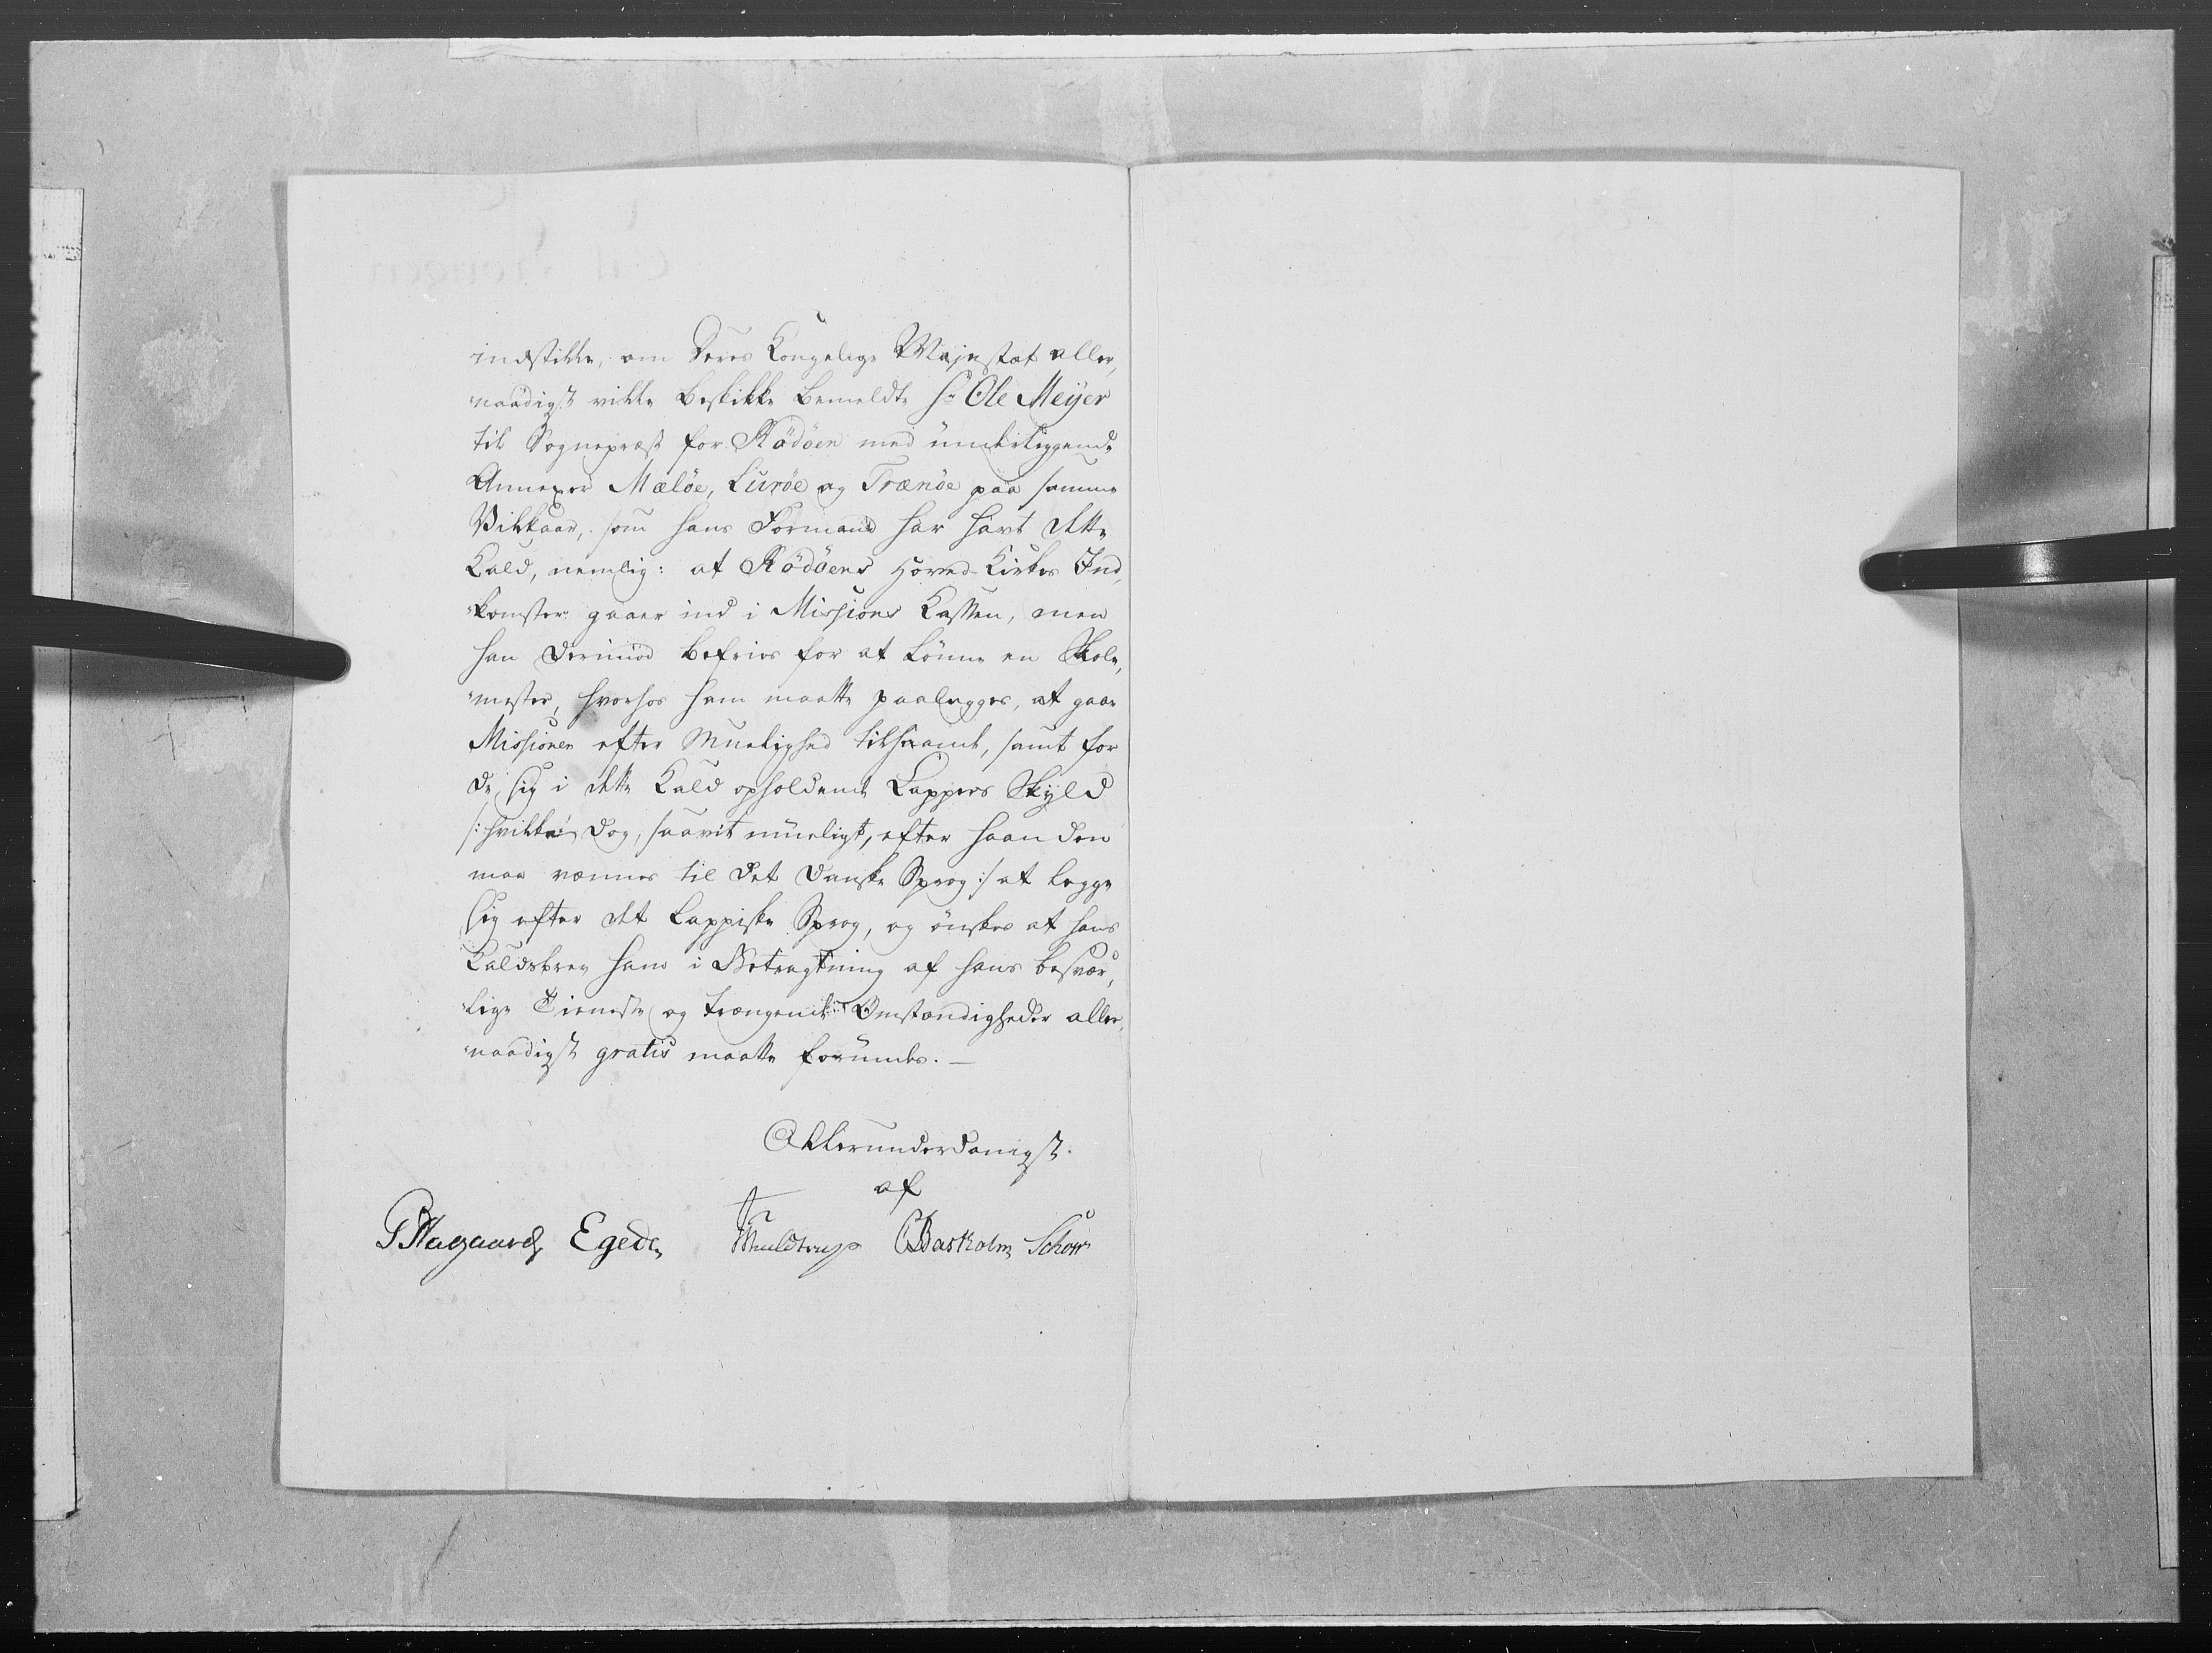 indstille, om Deres Kongelige Majestæt aller,
naadigst ville beskikke bemeldte Hr Ole Meijer
til Sognepræst for Rödöen med underliggende
Annexer Mælöe, Luröe og Trænöe paa samme
Vilkaar, som hans Formand har havt dette
Kald, nemlig: at Rödöens Hoved-Kirkes Ind,
komster gaaer ind i Missions Kassen, men
han derimod befries for at lönne en Skole,
mester, hvorhos ham maatte paalegges, at gaae
Missionen efter Muelighed tilhaande, samt for
de sig i dette Kald opholdende Lappers Skyld
/: hvilke dog, saavit mueligt, efter haanden
maa vænnes til det danske Sprog :/ at legge
sig efter det Lappiske Sprog, og önskes at hans
Kaldsbrev ham i Betragtning af hans besvær,
lige Tieneste og trængende Omstændigheder aller,
naadigst gratis maatte forundes. —
Allerunderdanigst
af
Egede Muldtrup CBastholm Schow